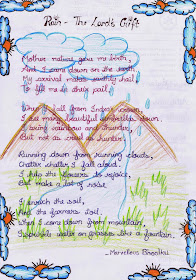 Rain - The Lord's Gift
Mother nature gave me birth,
And I came down on the earth.
My arrival makes earthly hail
To fill me in their pail.
When I fall from Indra's crown,
I see many beautiful umbrellas down.
I bring rainbow and thunder,
But not as cruel as hunter.
Running down from running clouds,
Chatter chatter I fall aloud.
I help the flowers to rejoice,
But make a lot of noise.
I enrich the soil,
And the farmers soil.
When I come down from mountain,
I sprinkle water on grasses like a fountain.
- Marvellous Bhrastaj